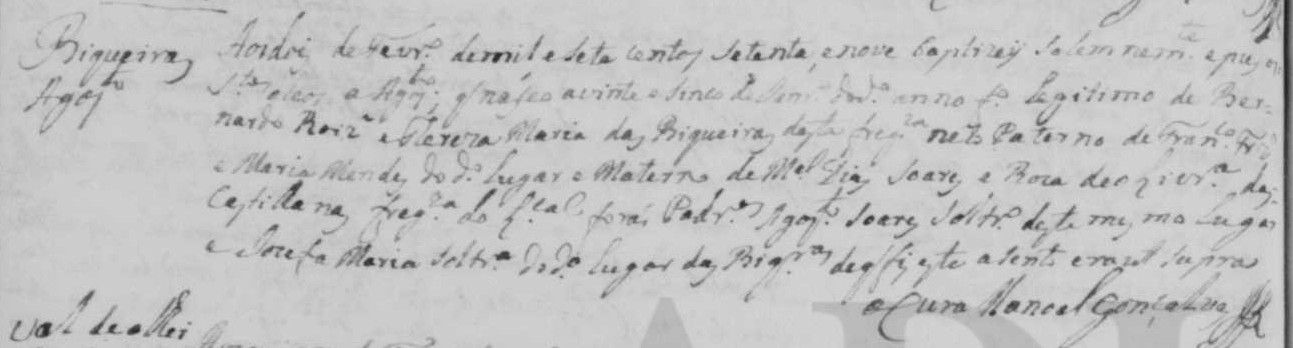 Biqueiras
Agost.º
Aos doi de Fevr.º de mil e seta centos setenta, e nove baptizey solemnem.te e pus os
S.tos oleos a Agt.º; q nasceo a vinte e sinco de Janr.º do d.º anno f.º legitimo de Ber-
nardo Roiz e Tereza Maria das Biqueiras desta freg.za neto Paterno de Fran.co Frz
e Maria Mendes do d.º lugar e Materno de M.el Dias Soares e Roza de olivr.ª das
Castillanas freg.za do forão Padr.os Agost.º Soares Soltr.º deste mesmo lugar
e Josefa Maria soltr.ª do d.º lugar das Biq.ras de q fis este asento era ut supra
o Cura Manoel Gonçalves
Val de